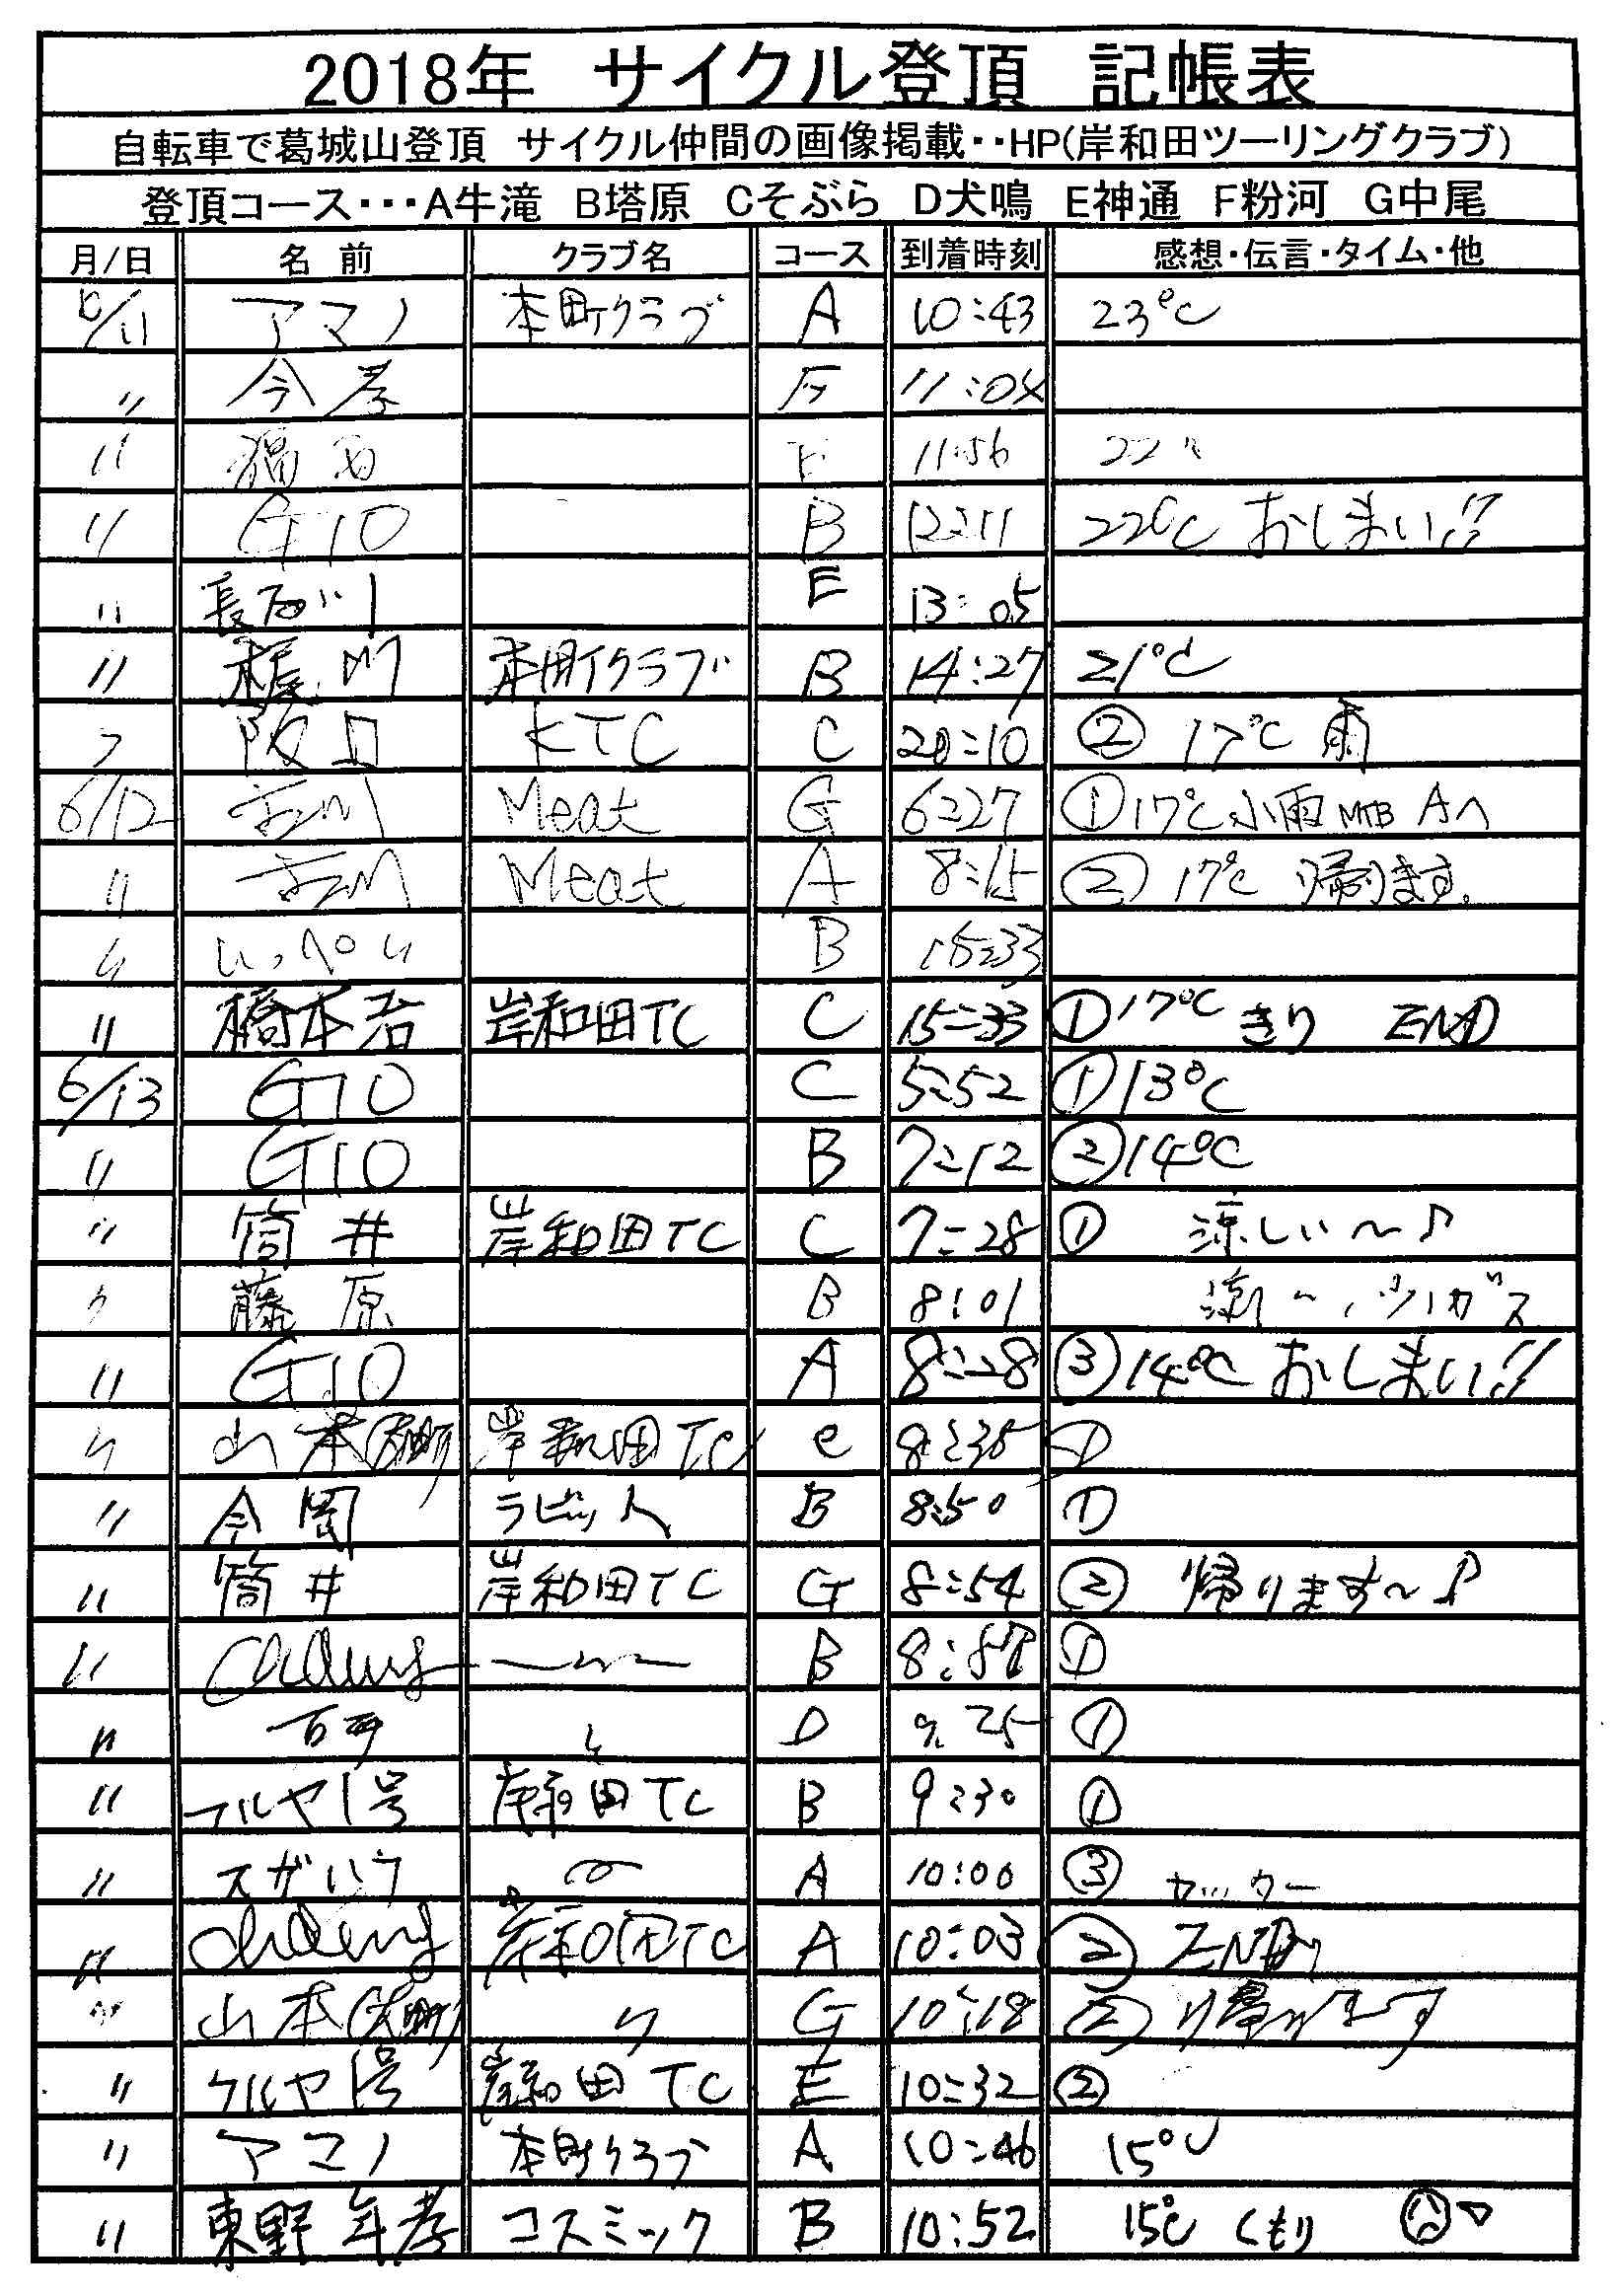 2018年 サイクル登頂 記帳表
自転車で葛城山登頂 サイクル仲間の画像掲載・・HP(岸和田ツーリングクラブ)
登頂コース・・・A牛滝 B塔原 Cそぶら D犬鳴 E神通 F粉河 G中尾
月/日 名前 クラブ名 コース 到着時刻 感想・伝言・タイム・他
6/11 アマノ 本町クラブ A 10:43 23℃
〃 今孝 F 11:04
〃 F 11:56 22
〃 GTO B 12:11 22℃ おしまい!!
〃 長谷川 E 13:05
〃 梶川 本町クラブ B 14:27 21℃
〃 阪口 KTC C 20:10 ② 17℃ 雨
6/12 Meat G 6:27 ①17℃ 小雨 MTB Aへ
〃 Meat A 8:15 ② 17℃ 帰ります。
〃 いっぺい B 15:33
〃 橋本 岸和田TC C 15:33 ①17℃ きり END
6/13 GTO C 5:52 ①13℃
〃 GTO B 7:12 ②14℃
〃 筒井 岸和田TC C 7:28 ① 涼しい〜♪
〃 藤原 B 8:01
〃 GTO A 8:28 ③14℃ おしまい!!
〃 山本 岸和田TC C 8:35 ①
〃 今岡 ラビット B 8:50 ①
〃 筒井 岸和田TC G 8:54 ② 帰ります〜♪
〃 B ①
〃 D 9:25 ①
〃 フルヤ1号 岸和田TC B 9:30 ①
〃 A 10:00 ③
〃 岸和田TC A 10:03 ②
〃 山本 〃 G 10:18 ② 帰ります
〃 フルヤ1号 岸和田TC E 10:32 ②
〃 アマノ 本町クラブ A 10:46 15℃
〃 東野 年孝 コスミック B 10:52 15℃ くもり